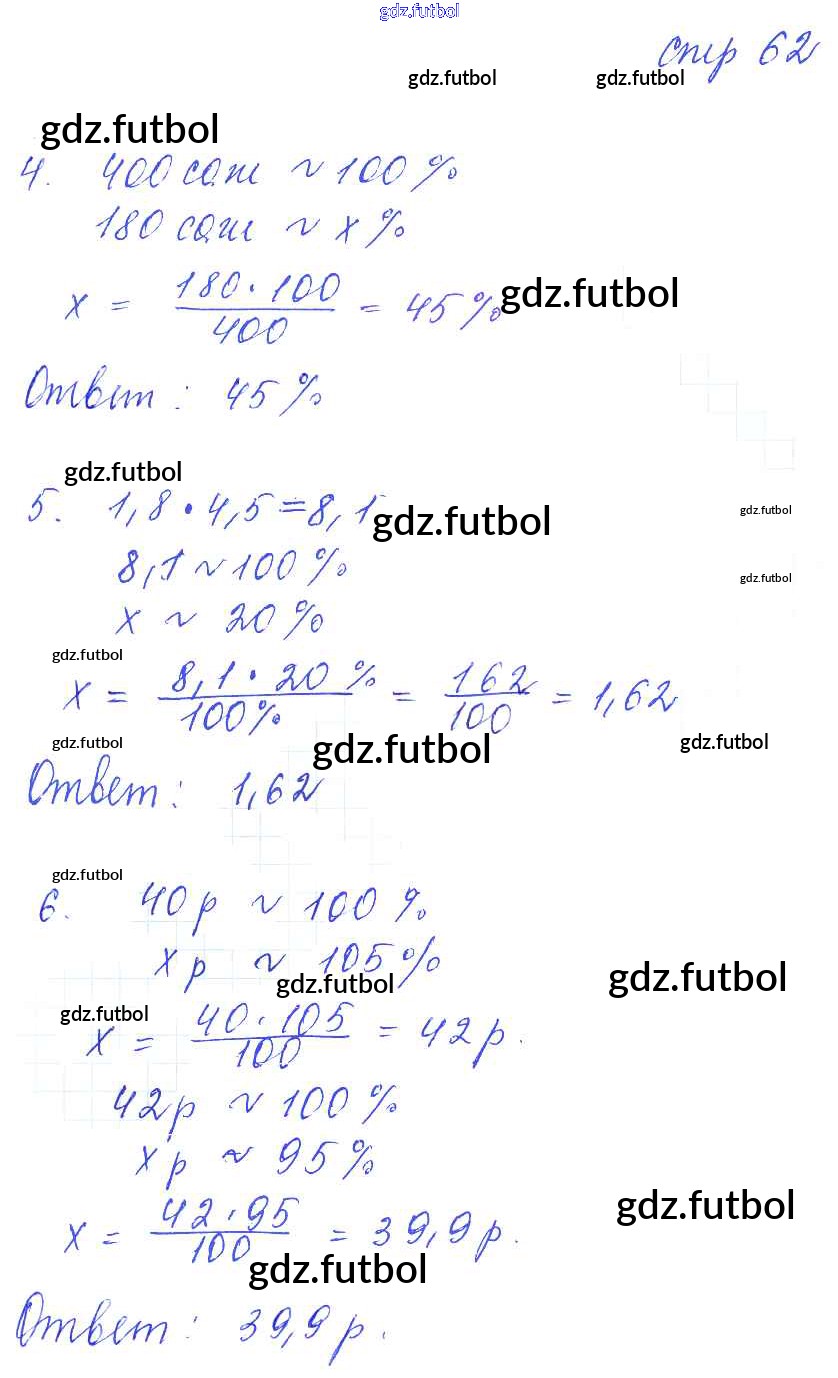 gdz.futbol
стр 62
gdz.futbol gdz.futbol
gdz.futbol
4. 400 саж ~ 100 %
180 саж ~ x %
x = 180 · 100 / 400 = 45 % gdz.futbol
Ответ: 45 %
gdz.futbol
5. 1,8 · 4,5 = 8,1 gdz.futbol gdz.futbol
8,1 ~ 100 % gdz.futbol
x ~ 20 %
gdz.futbol
x = 8,1 · 20 % / 100 % = 162 / 100 = 1,62
gdz.futbol gdz.futbol gdz.futbol
Ответ: 1,62
gdz.futbol
6. 40 р ~ 100 %
x р ~ 105 %
gdz.futbol gdz.futbol
gdz.futbol
x = 40 · 105 / 100 = 42 р.
42 р ~ 100 %
x р ~ 95 %
gdz.futbol
x = 42 · 95 / 100 = 39,9 р.
gdz.futbol
Ответ: 39,9 р.